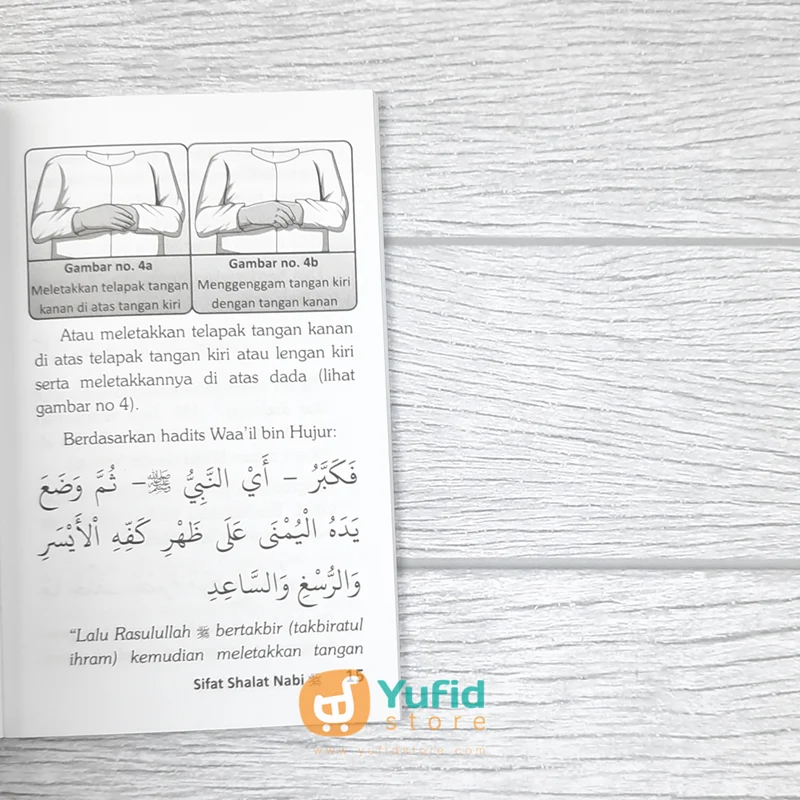 Gambar no. 4a
Meletakkan telapak tangan
kanan di atas tangan kiri
Gambar no. 4b
Menggenggam tangan kiri
dengan tangan kanan
Atau meletakkan telapak tangan kanan
di atas telapak tangan kiri atau lengan kiri
serta meletakkannya di atas dada (lihat
gambar no 4).
Berdasarkan hadits Waa'il bin Hujur:
فَكَبَّرُ – أَيْ النَّبِيُّ ﷺ – ثُمَّ وَضَعَ
يَدَهُ الْيُمْنَى عَلَى ظَهْرِ كَفِّهِ الْأَيْسَرِ
وَالرُّسْغِ وَالسَّاعِدِ
"Lalu Rasulullah ﷺ bertakbir (takbiratul
ihram) kemudian meletakkan tangan
Sifat Shalat Nabi ﷺ 15
Yufid
store
www.yufidstore.com